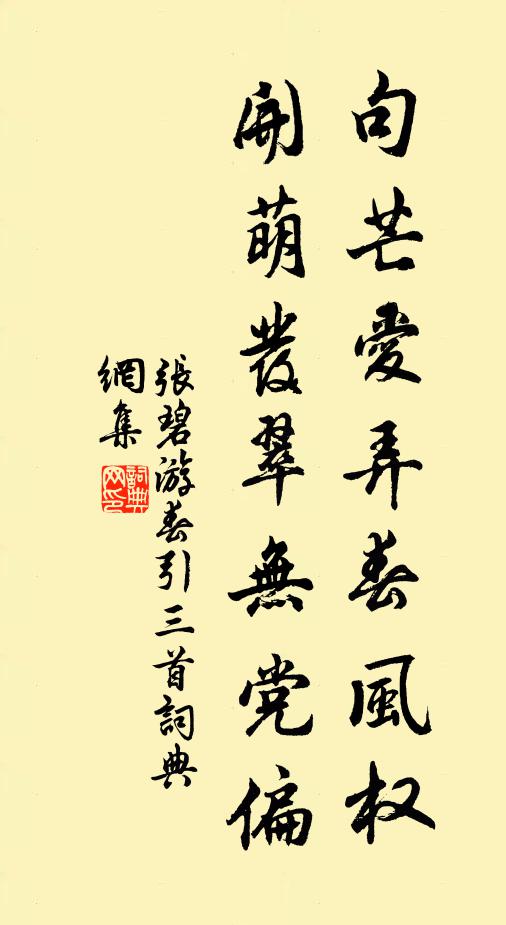 句芒愛弄春風权
開萌發翠無党偏
張碧游春引三首詞典
網集
詞典
网印